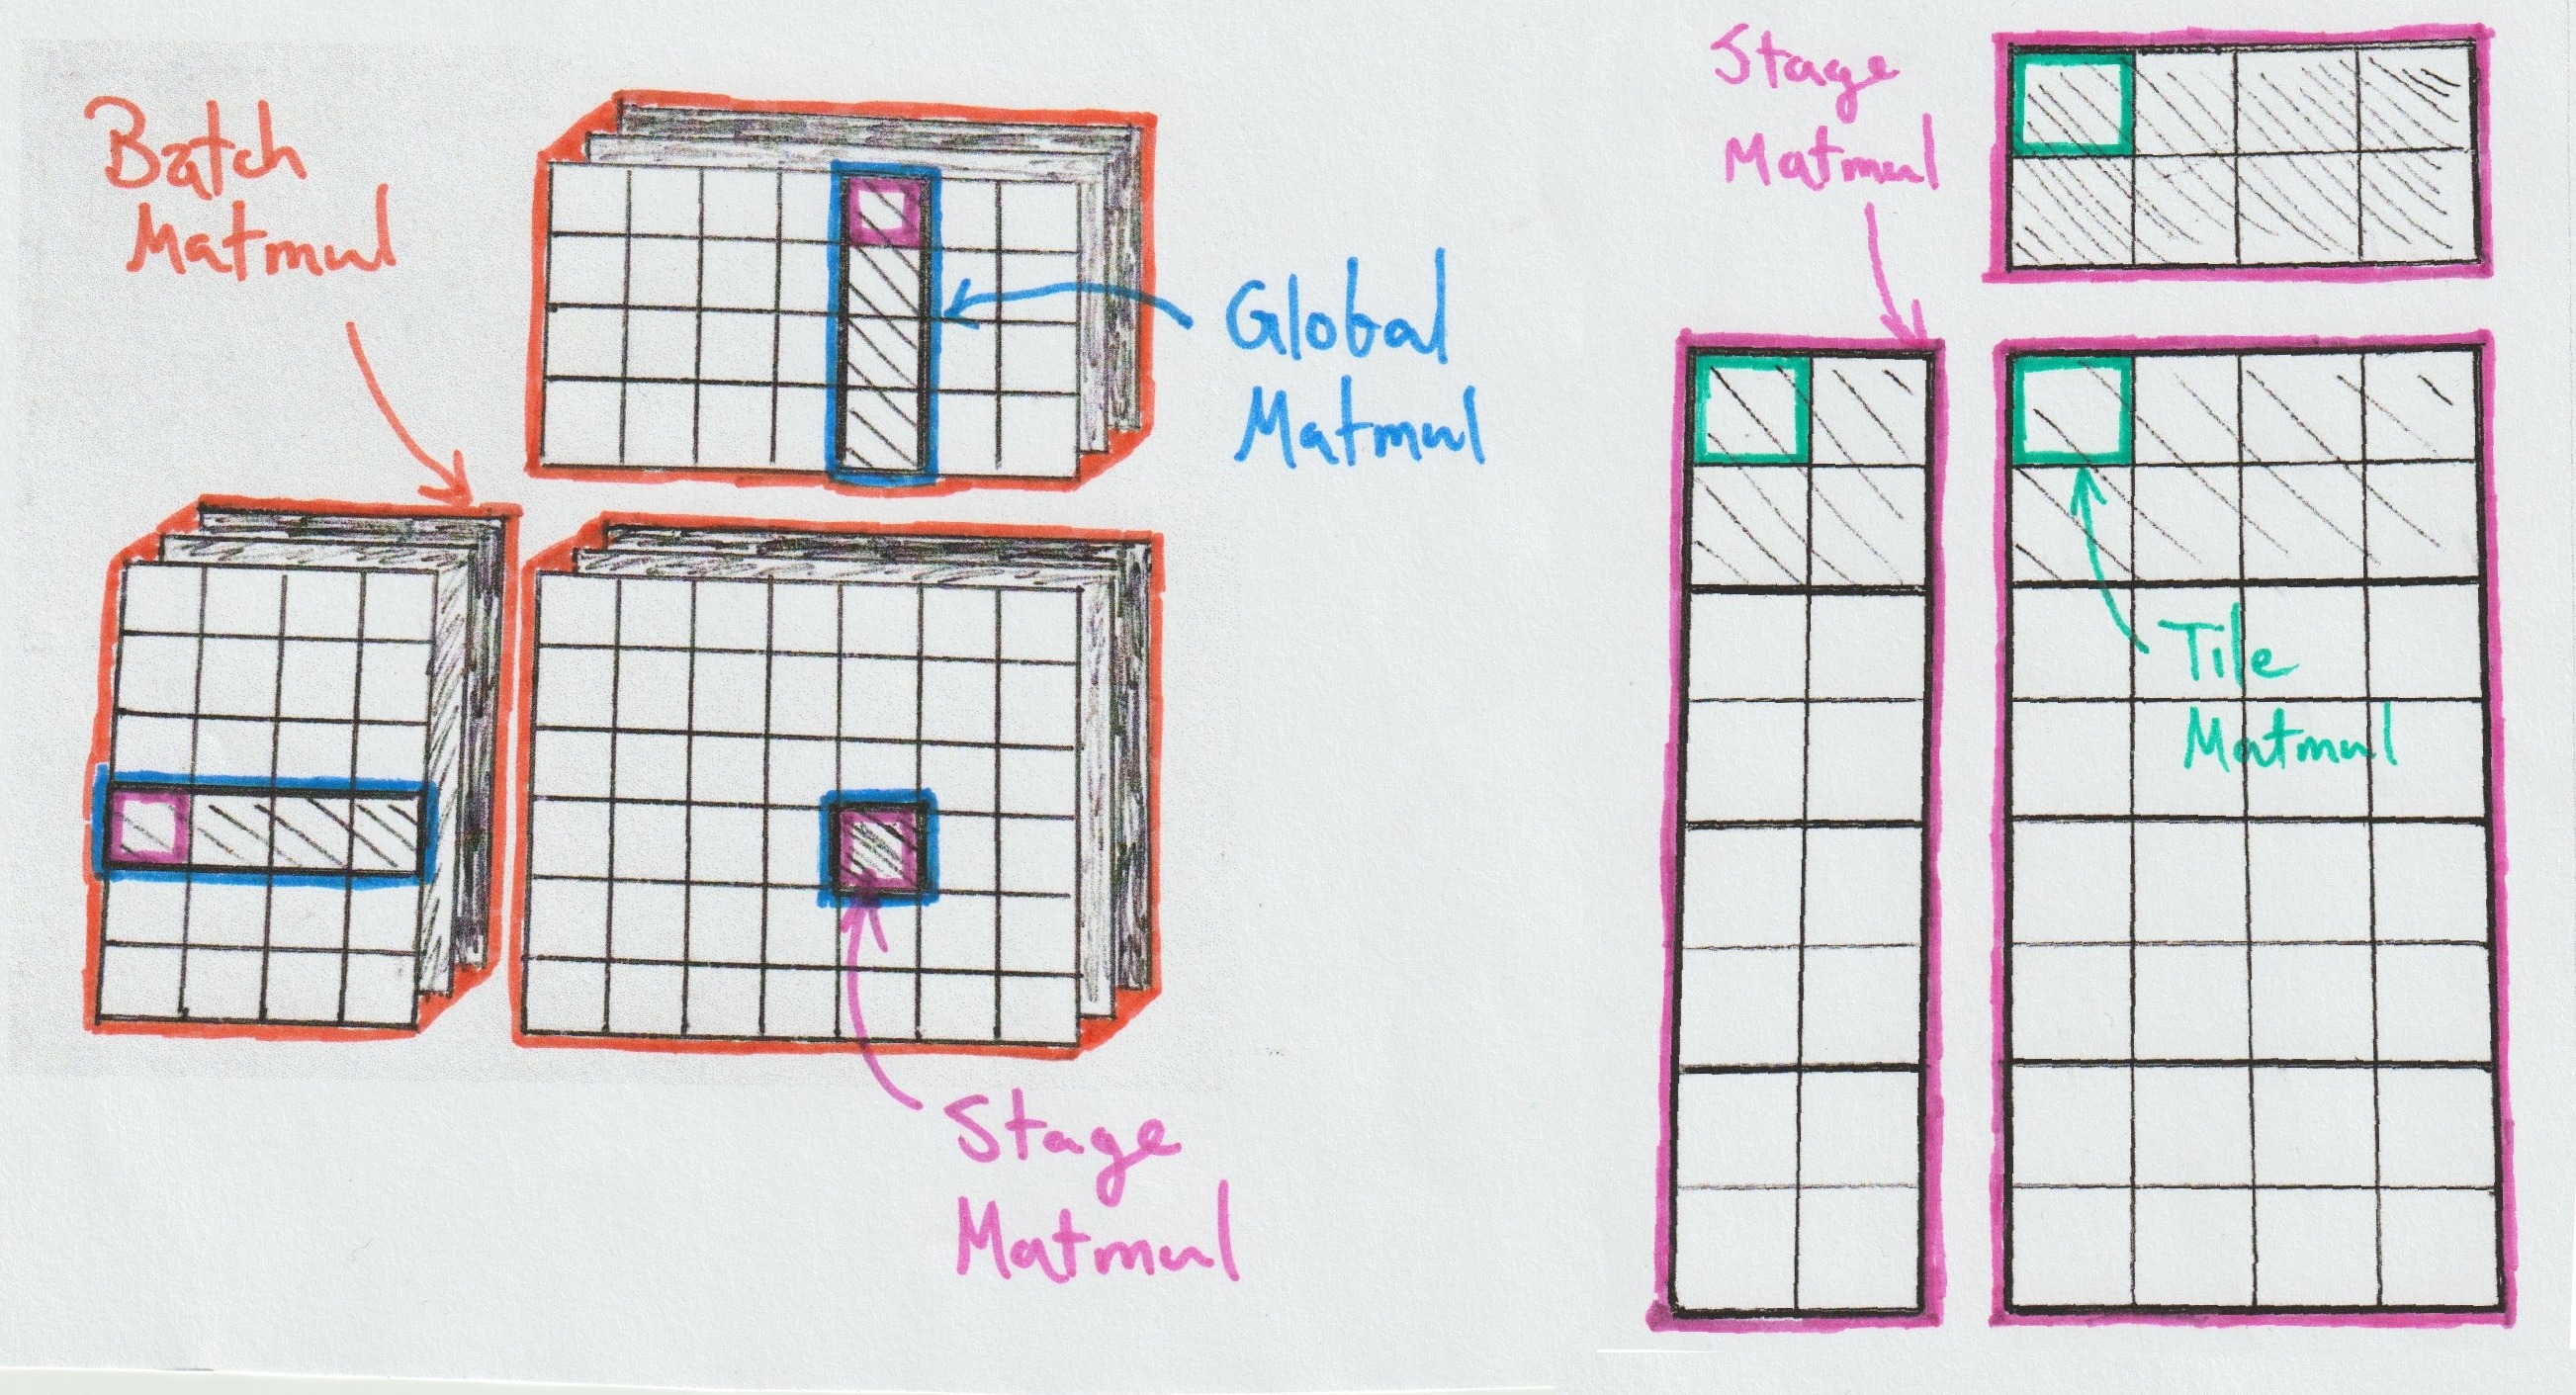 Batch
Matmul
Global
Matmul
Stage
Matmul
Stage
Matmul
Tile
Matmul